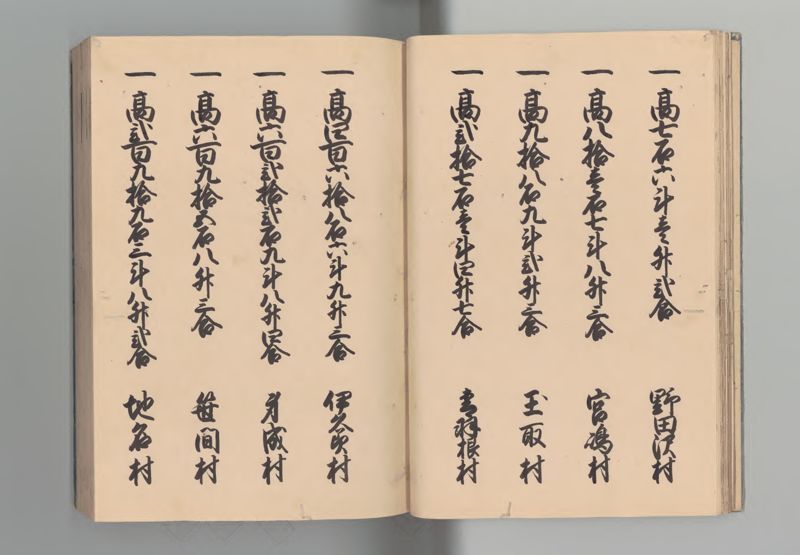 一高七石六斗壱升弐合 野田沢村
一高八拾壱石七斗八升三合 宮嶋村
一高九拾八石九斗弐升三合 玉取村
一高弐拾七石壱斗四升七合 青羽根村
一高四百六拾八石六斗九升三合 伊久美村
一高六百弐拾弐石九斗八升四合 身成村
一高六百九拾五石八升三合 笹間村
一高弐百九拾九石三斗八升弐合 地名村